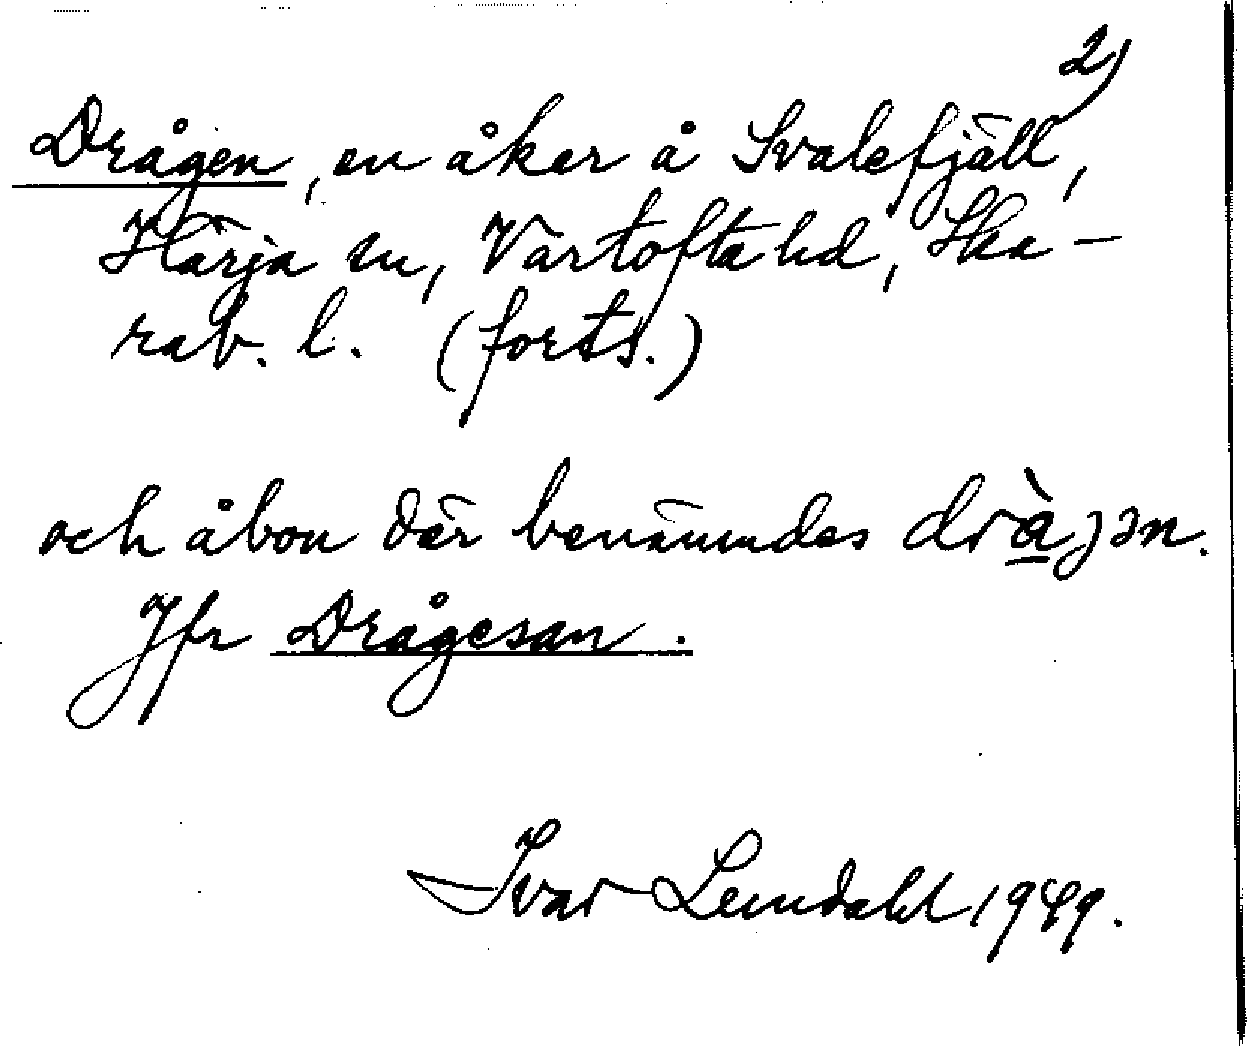 2)
Drågen, en åker å Svalefjäll,
Härja sn, Vartofta hd, Ska-
rab. l. (forts.)
och åbon där benämndes dràgən.
Jfr Drågesan.
Ivar Lundahl 1949.